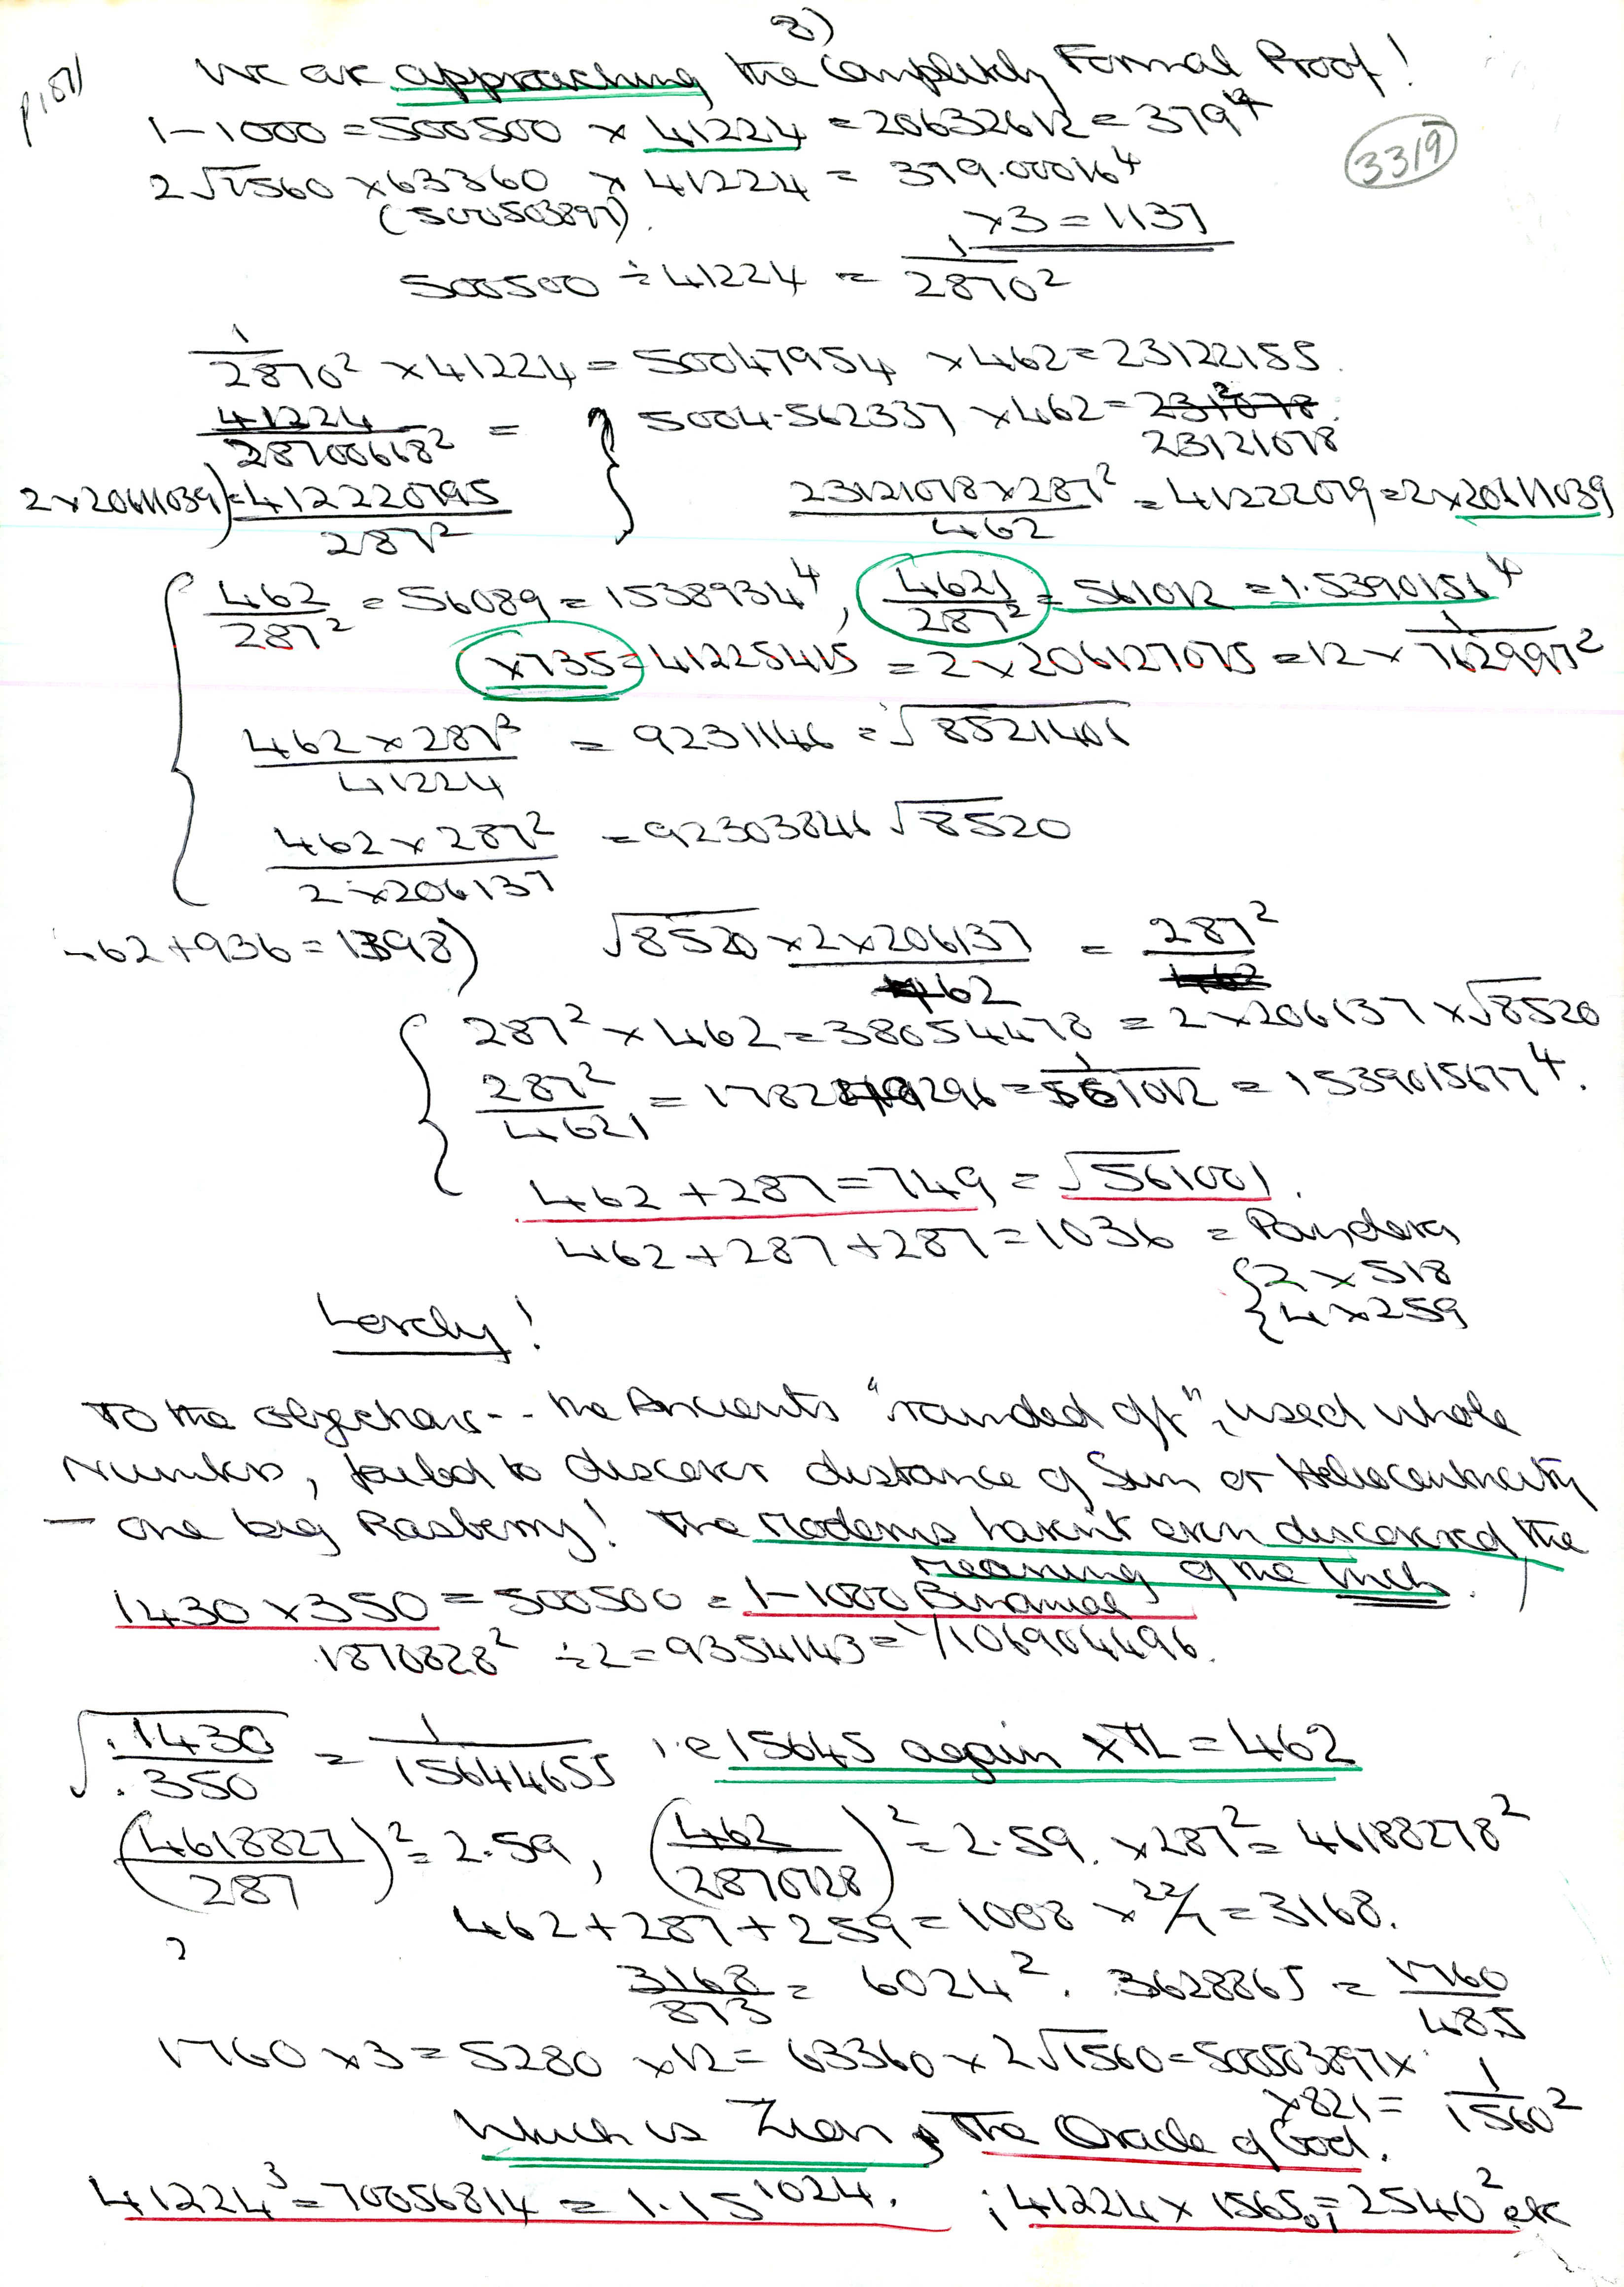 8)
p187)
We are approaching the Completely Formal Proof!
3319
1-1000 = 500500 × 41224 = 20632612 = 379⁴
2√1560 × 63360 × 41224 = 379.00016⁴
(500503897).
× 3 = 1137
500500 ÷ 41224 = 1/2870²
1/2870² × 41224 = 50047954 × 462 = 23122155.
41224/28700618² = } 5004.562337 × 462 = 23121078
2×20611039) = 412220795/287²
23121078×287²/462 = 41222079 = 2×20611039
462/287² = 56089 = 1538934⁴, 4621/287² = 561012 = 1.5390156⁴
×735 = 41225415 = 2×206127075 = 12 × 1/762997²
462×287³/41224 = 9231146 = √8521401
462×287²/2×206137 = 92303846 √8520
462+936=1398)
√8520×2×206137/462 = 287²
287² × 462 = 38054478 = 2×206137×√8520
287²/4621 = 1782 296 = 1/561012 = 1539015677⁴.
462 + 287 = 749 = √561001.
462 + 287 + 287 = 1036 = Pandora
{2 × 518
{4 × 259
Lovely!
To the objectors-- the Ancients "rounded off", used whole
Numbers, failed to discover distance of Sun or Heliocentricity
- one big Rasberry! The Moderns haven't even discovered the
meaning of the Inch.
1430 × 350 = 500500 = 1-1000 Binomial
1870828² ÷ 2 = 9354143 = 1/106904496.
√.1430/.350 = 1/15644655 i.e 15645 again × TL = 462
(4618827/287)² = 2.59, (462/2870728)² = 2.59. × 287² = 46188278²
462 + 287 + 259 = 1008 × 22/7 = 3168.
3168/873 = 6024². 3628865 = 1760/485
1760 × 3 = 5280 × 12 = 63360 × 2√1560 = 500503897×
×821 = 1/1560²
Which is Zion, The Oracle of God.
41224³ = 70056814 = 1.15¹⁰²⁴. ; 41224 × 1565 = 2540² etc